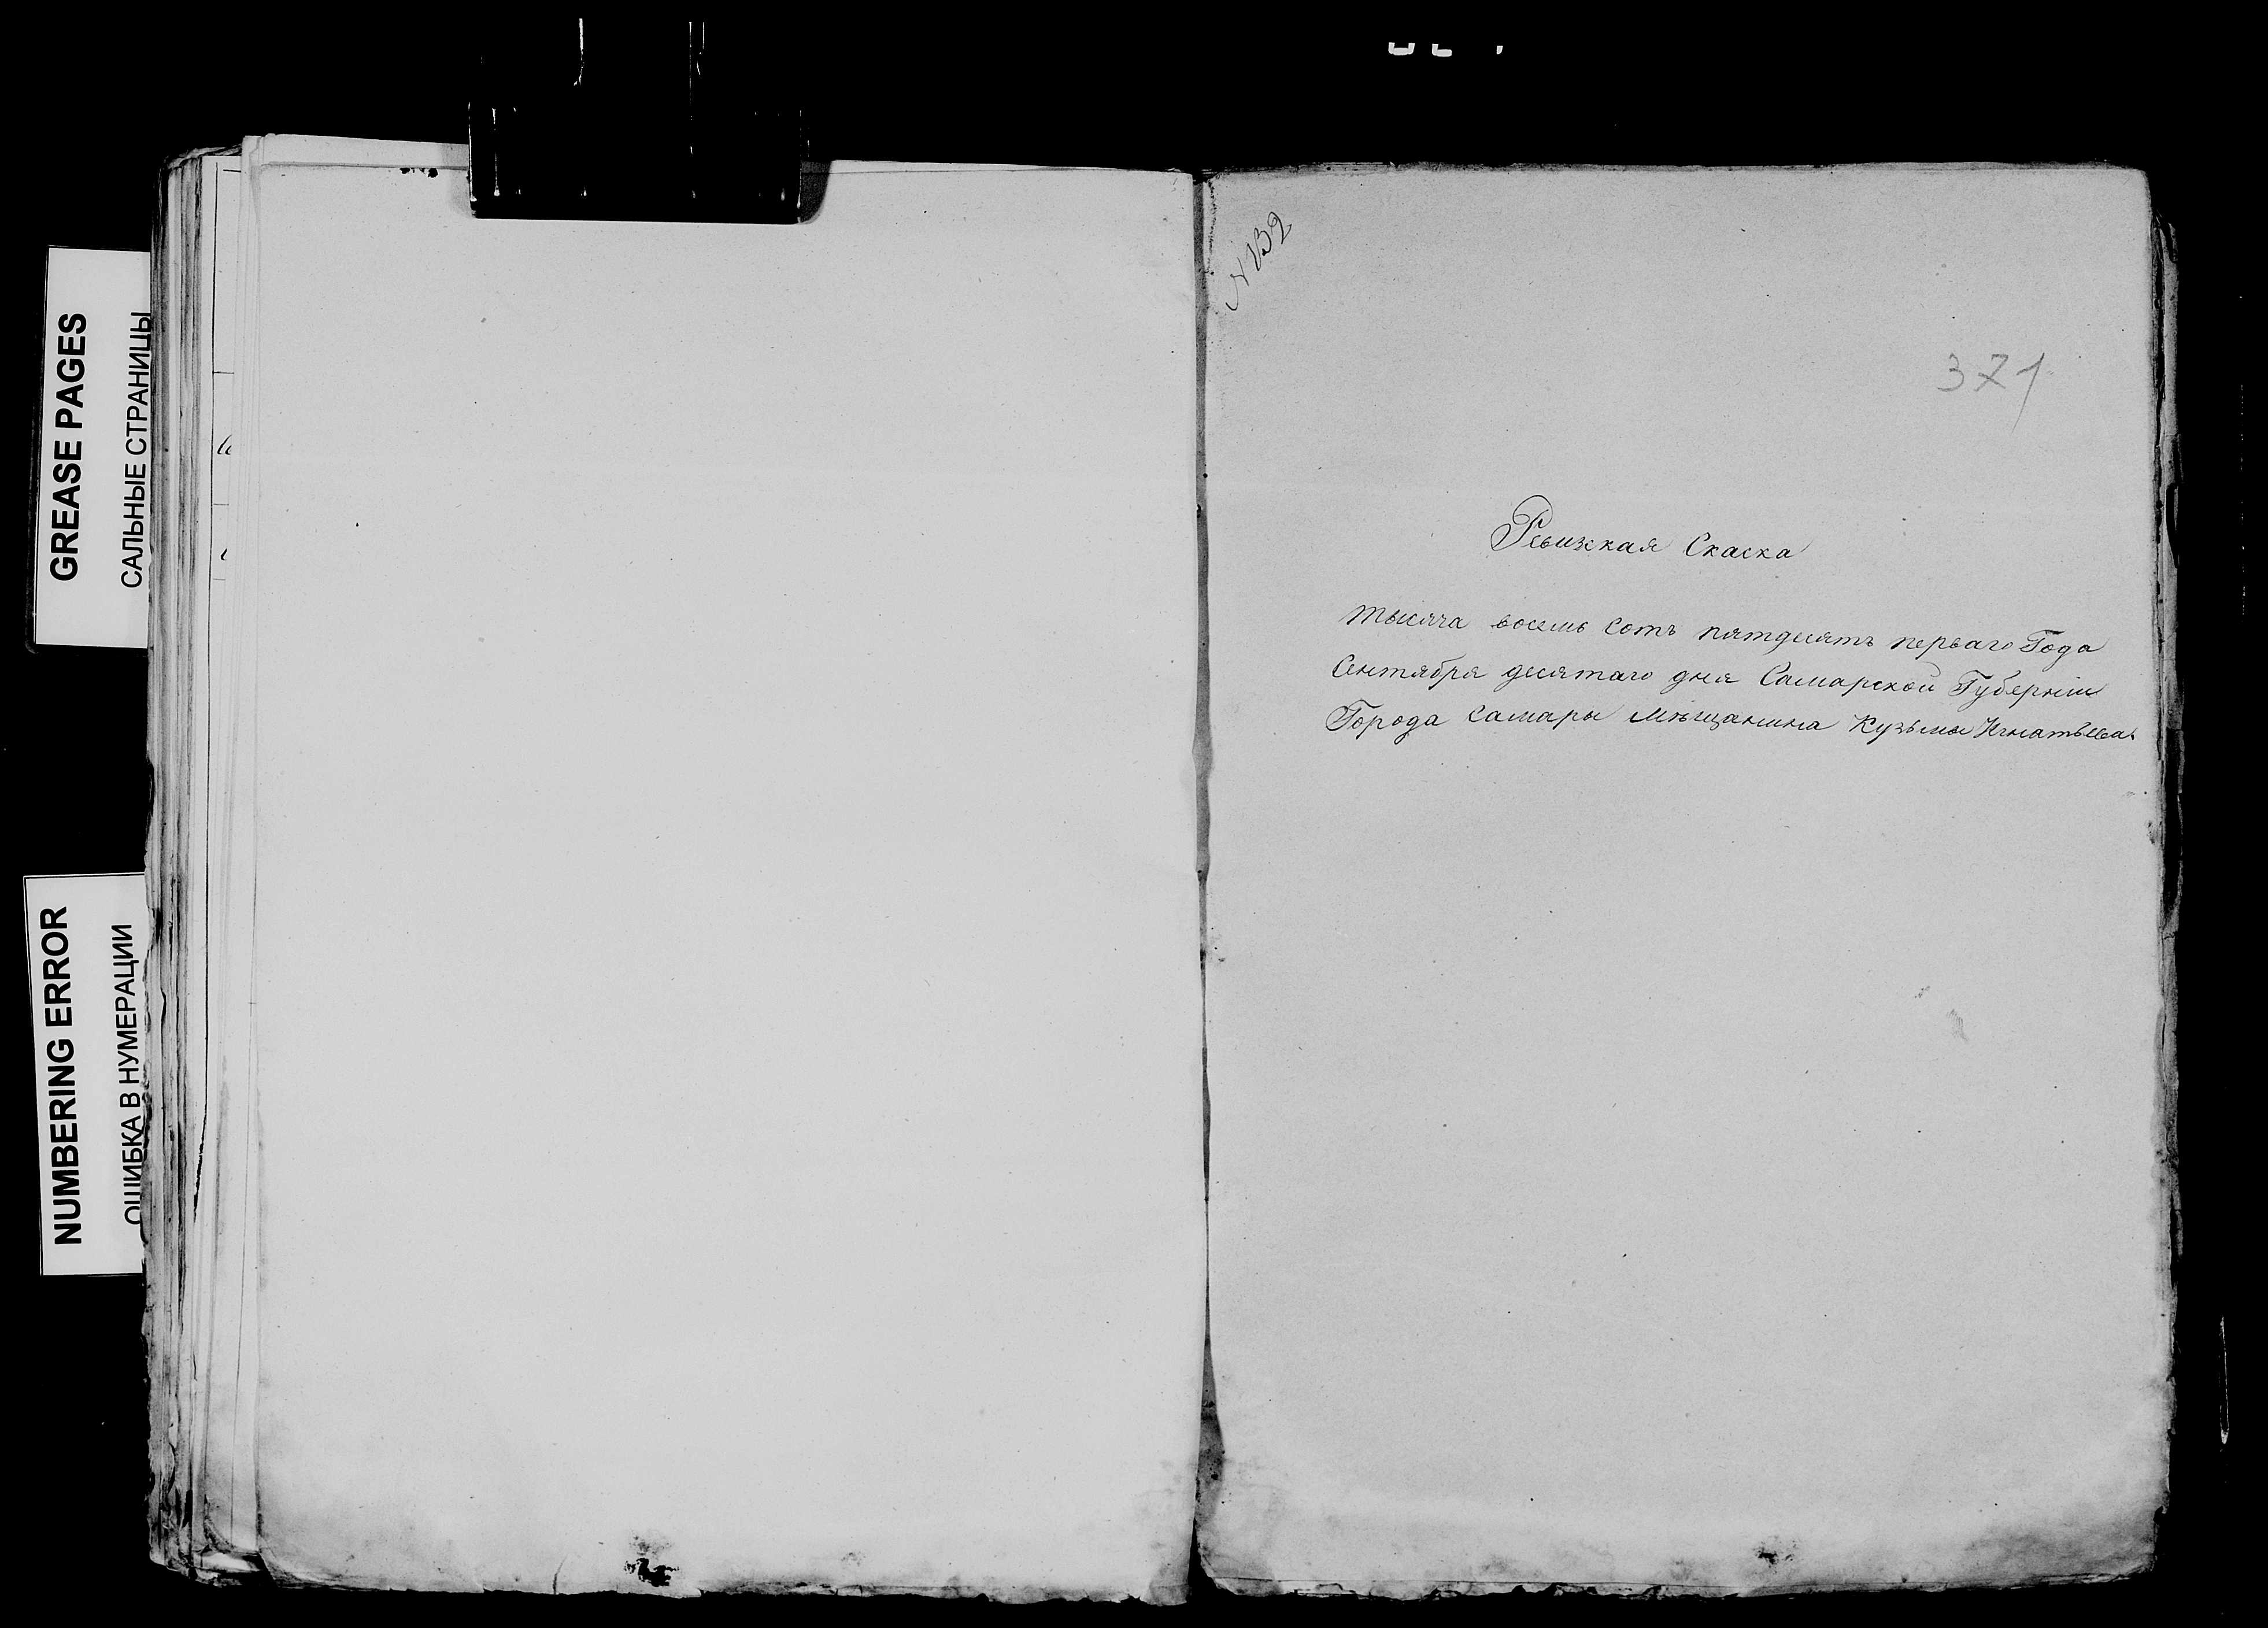 GREASE PAGES
САЛЬНЫЕ СТРАНИЦЫ
NUMBERING ERROR
ОШИБКА В НУМЕРАЦИИ
N 132
371
Ревизкая Скаска
тысяча восемь сотъ пятдесятъ перваго Года
Сентября десятаго дня Самарской Губерніи
Города Самары мѣщанина Кузьмы Игнатьева